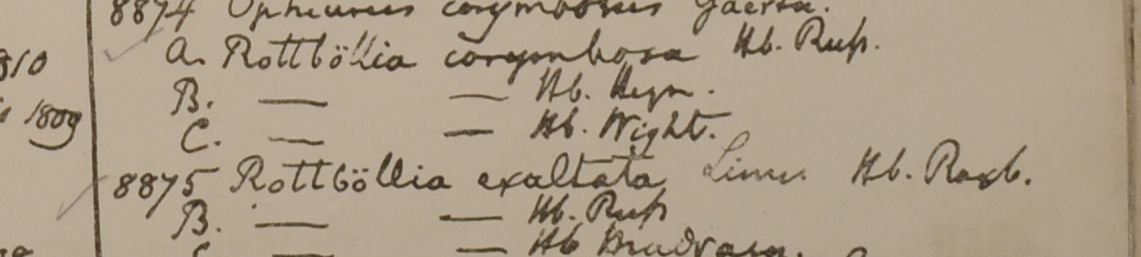 8874 Ophiurus corymbosus Gaertn.
A. Rottböllia corymbosa Hb. Russ.
B. — — Hb. Heyn.
C. — — Hb. Wight.
8875 Rottböllia exaltata Linn. Hb. Roxb.
B. — — Hb. Russ
— Hb Madras.
810
1809